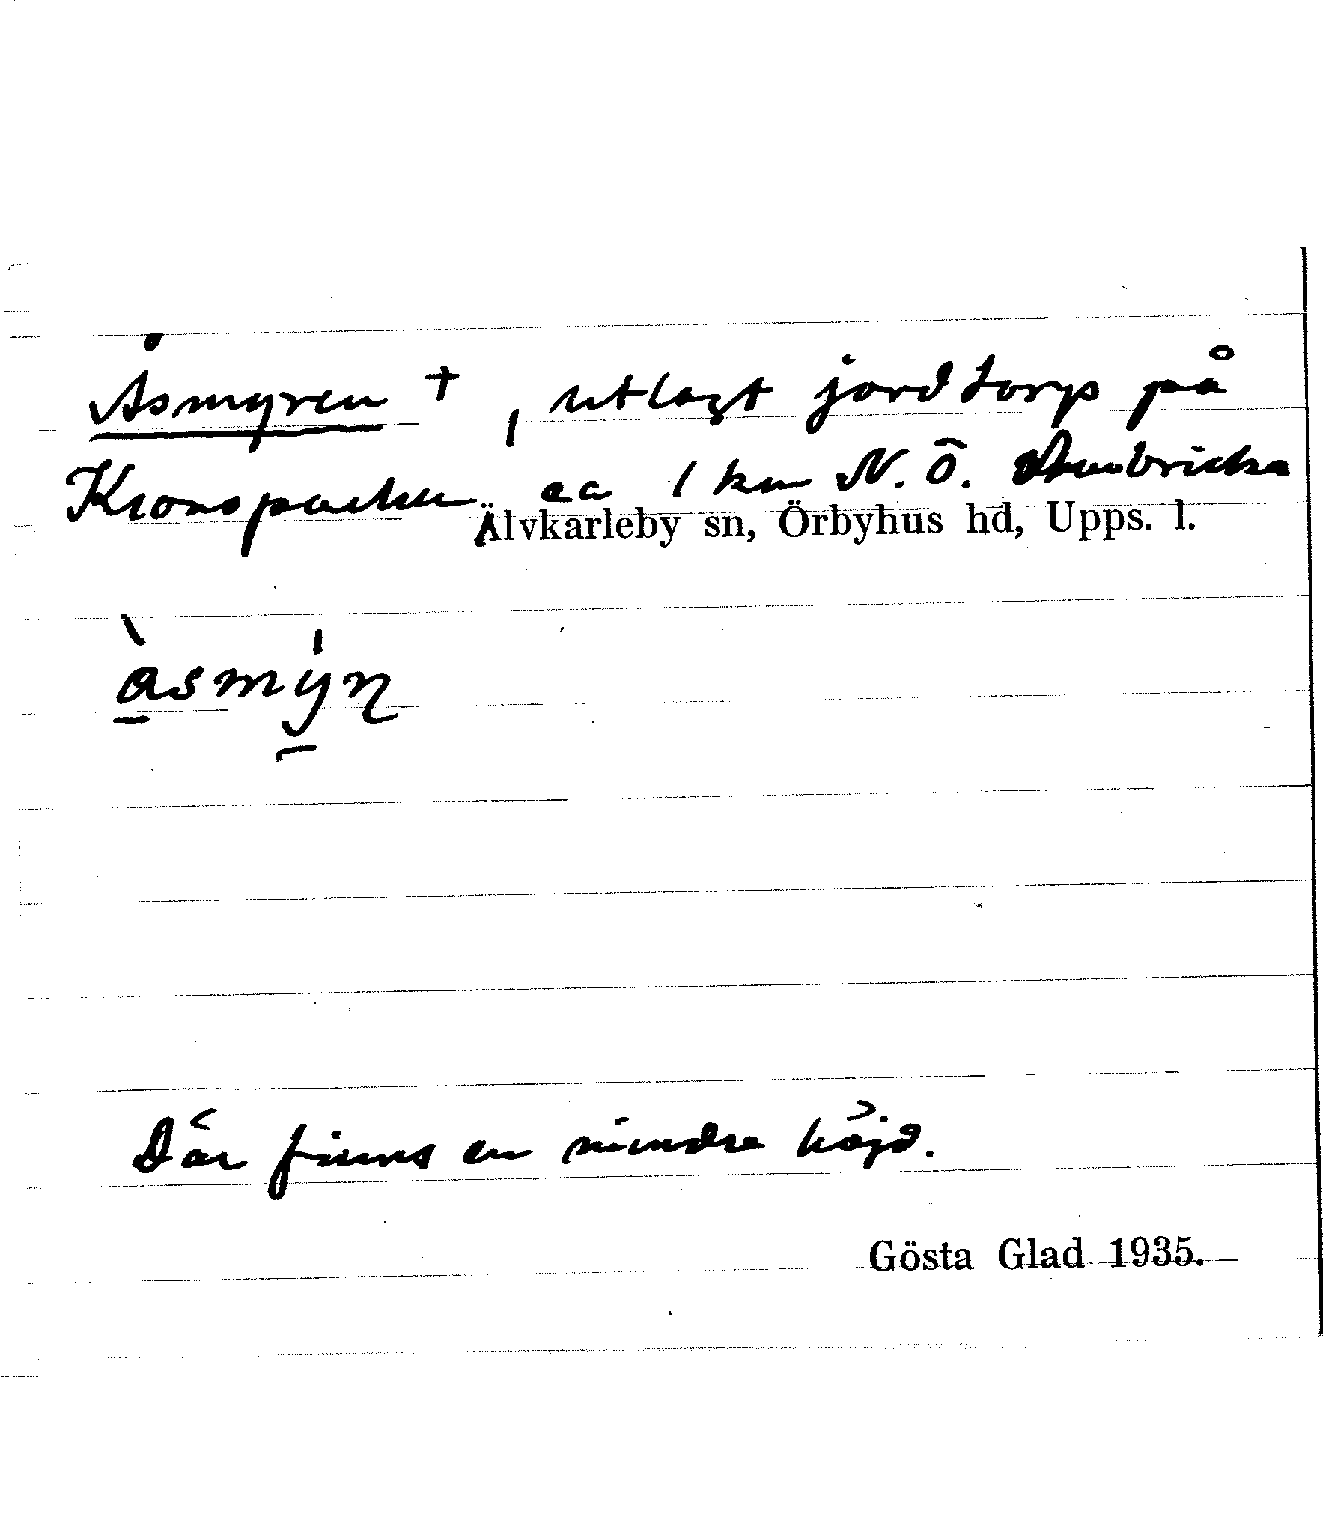 Åsmyren †, utlagt jordtorp på
Kronoparken ca 1 km N. Ö.
Älvkarleby sn, Örbyhus hd, Upps. l.
àsmýn
Där finns en mindre höjd.
Gösta Glad 1935.